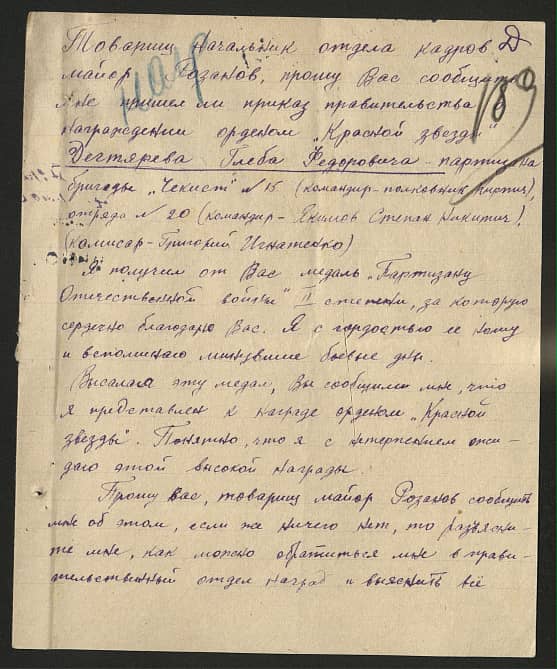 Товарищ начальник отдела кадров
майор Розанов, прошу Вас сообщить
мне пришел ли приказ правительства о
награждении орденом „Красной звезды"
Дегтярева Глеба Федоровича - партизана
бригады „Чекист" №15 (командир-полковник Кирпич),
отряда №20 (командир - Якимов Степан Никитич),
(комисар - Григорий Игнатенко)
Я получил от Вас медаль „Партизану
Отечественной войны" II степени, за которую
сердечно благодарю Вас. Я с гордостью ее ношу
и вспоминаю минувшие боевые дни.
Высылая эту медал, Вы сообщили мне, что
я представлен к награде орденом „Красной
звезды". Понятно, что я с нетерпением ожи-
даю этой высокой награды.
Прошу вас, товарищ майор Розанов сообщить
мне об этом, если же ничего нет, то разъясни-
те мне, как можно обратиться мне в прави-
тельственный отдел наград и выяснить всё
189